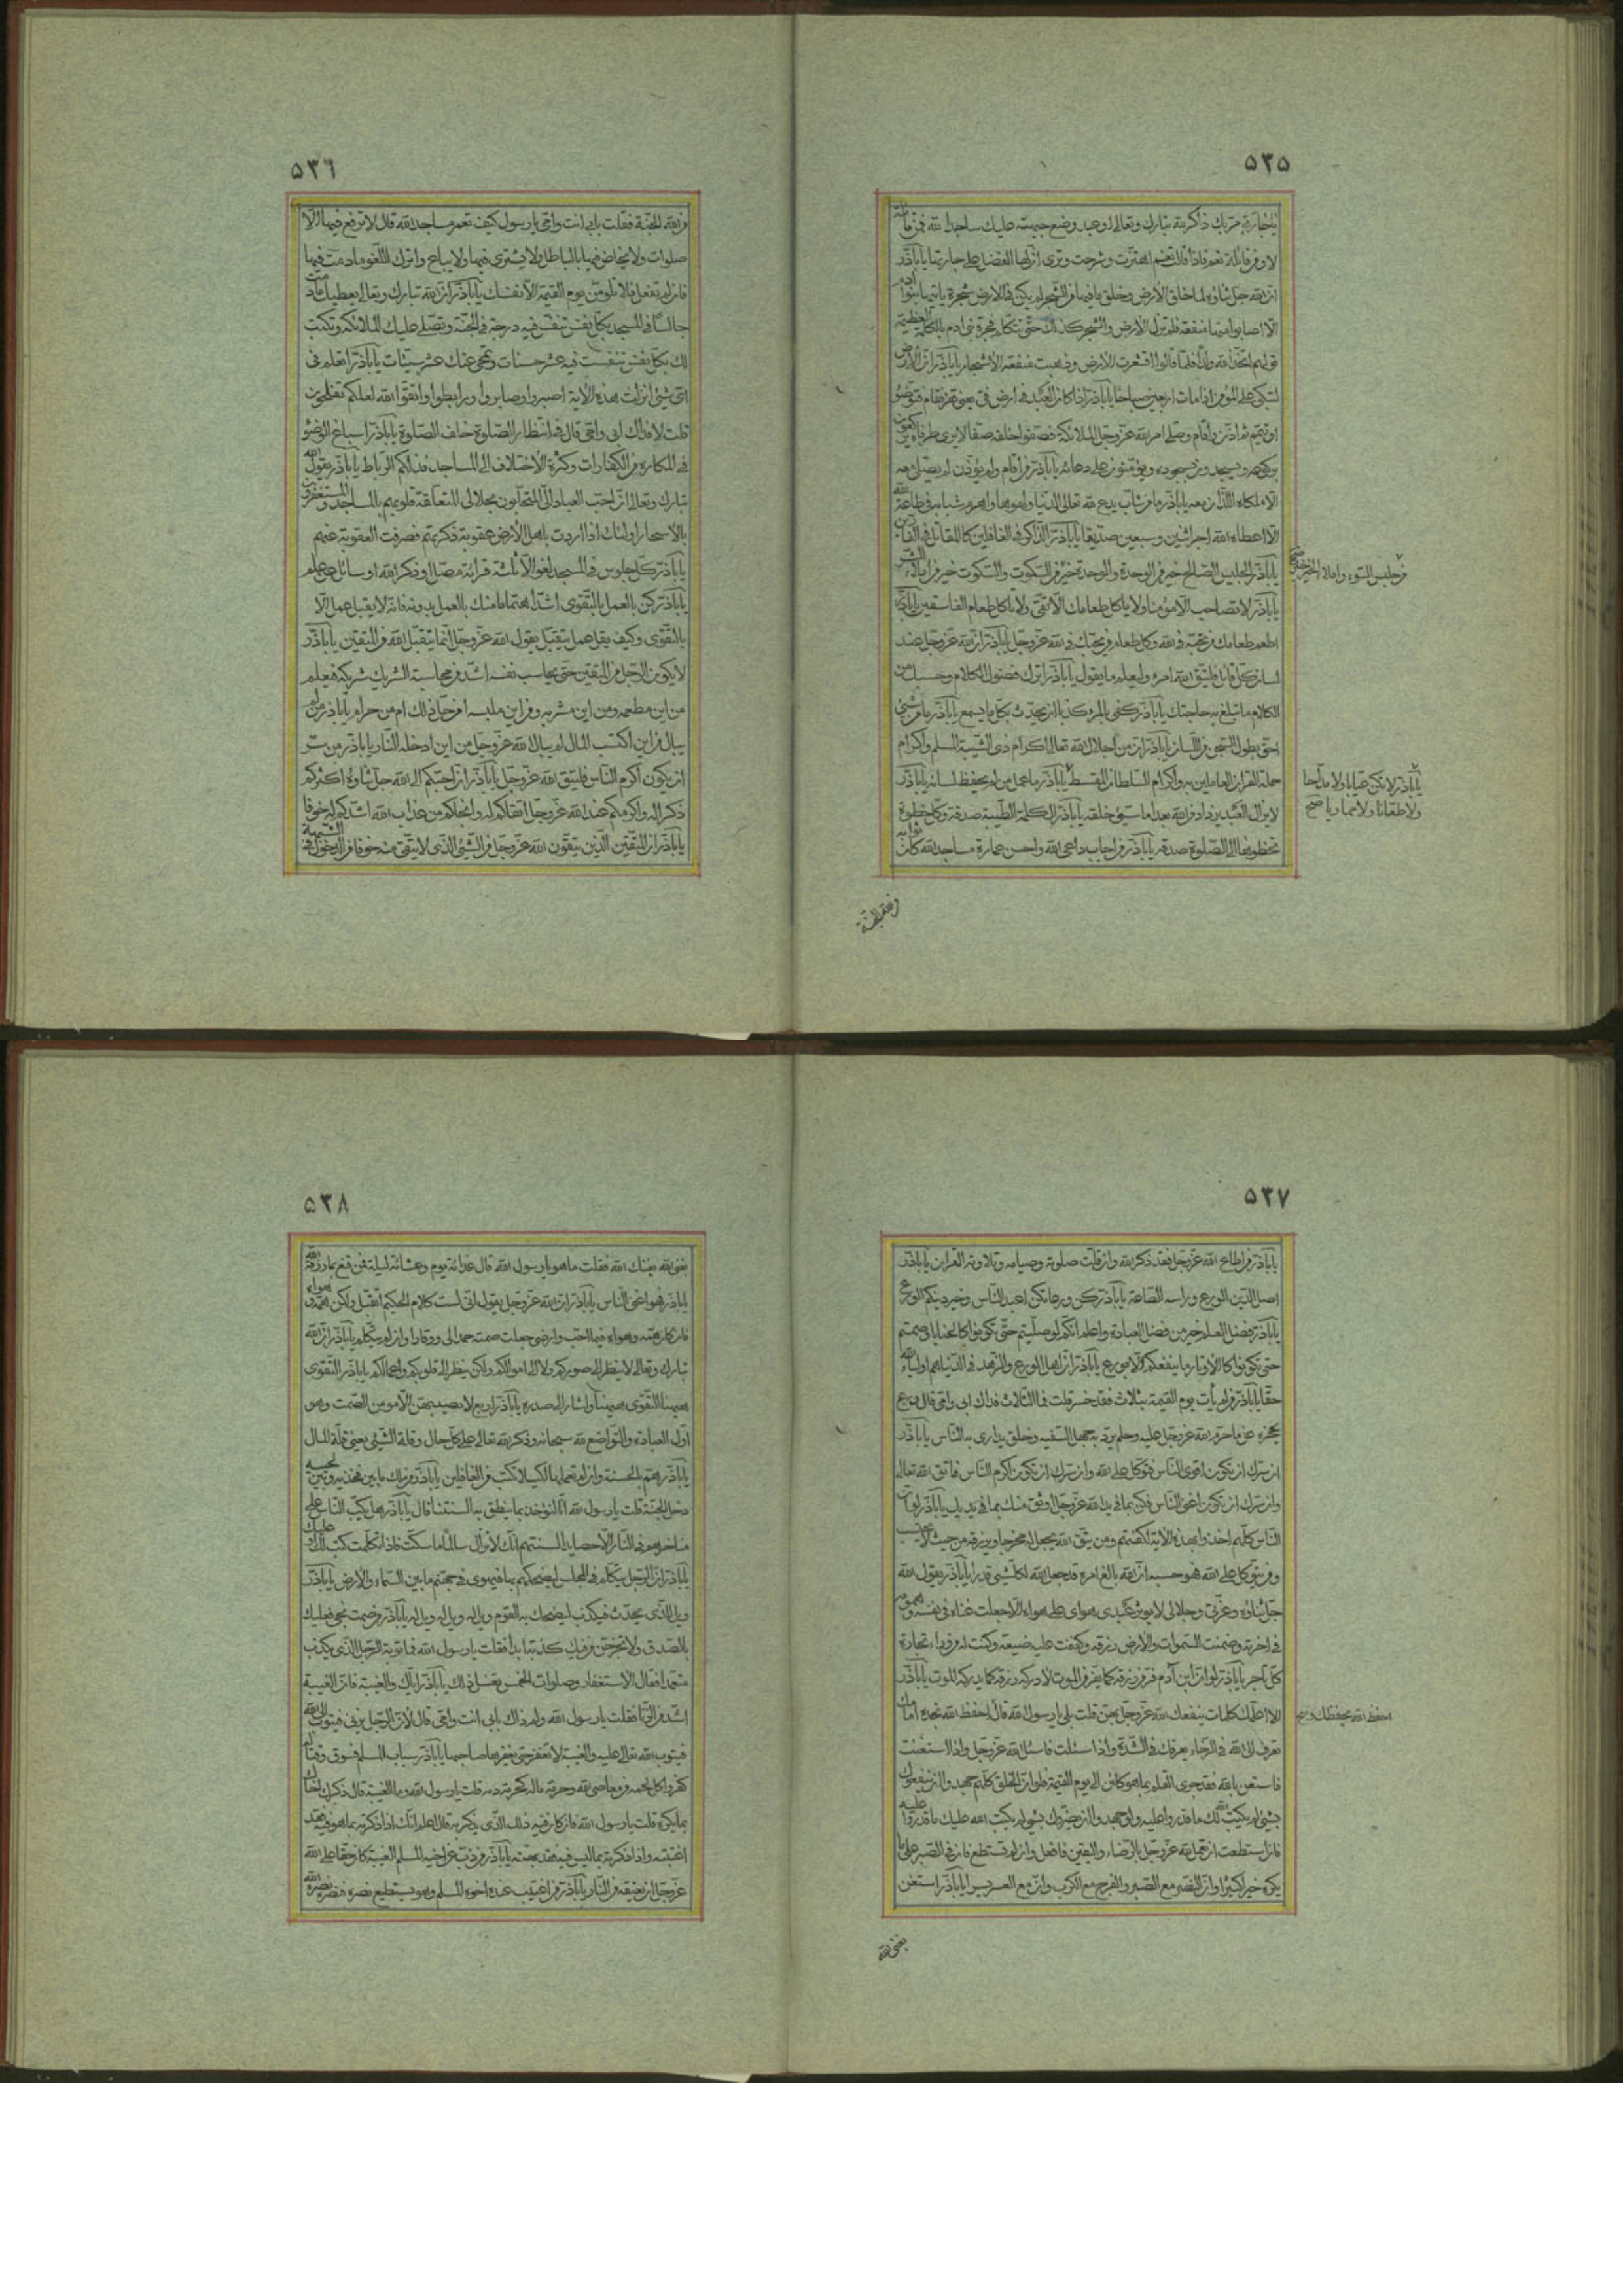 ٥٣٥
يا جارة هل مر بك ذاكر لله تبارك وتعالى او عبد وضع جبهته عليك ساجدا لله فمن قائلة
لا ومن قائلة نعم فاذا قالت نعم اهتزت وشرحت وترى ان لها الفضل على جارتها يا باذر
ان الله جل ثناؤه لما خلق الارض وخلق ما فيها من الشجر لم يكن في الارض شجرة ياتيها بنو ادم
الا اصابوا منها منفعة فلم تزل الارض والشجر كذلك حتى تتكلم فجرة بنى ادم بالكلمة العظيمة
قولهم اتخذ الله ولدا فلما قالوا اقشعرت الارض وذهبت منفعة الاشجار يا باذر ان الارض
لتبكى على المؤمن اذا مات اربعين صباحا يا باذر اذا كان العبد في ارض في يعنى قفر فتوضؤ
او تيمم ثم اذن واقام وصلى امر الله عز وجل الملائكة فصفوا خلفه صفا لا يرى طرفاه يركعون
بركوعه ويسجدون بسجوده ويؤمنون على دعائه يا باذر من اقام ولم يؤذن لم يصل معه
الا ملكاه اللذان معه يا باذر ما من شاب يدع لله تعالى الدنيا ولهوها واهرم شبابه في طاعة الله
الا اعطاه الله اجر اثنين وسبعين صديقا يا باذر الذاكر في الغافلين كالمقاتل في الفارين
يا باذر الجليس الصالح خير من الوحدة والوحدة خير من السكوت والسكوت خير من املاء الشر
من جليس السوء واملاء الخير خير صح
يا باذر لا تصاحب الا مؤمنا ولا ياكل طعامك الا تقى ولا تاكل طعام الفاسقين يا باذر
اطعم طعامك من تحبه في الله وكل طعام من يحبك في الله عز وجل يا باذر ان الله عز وجل عند
لسان كل قائل فليتق الله امرء وليعلم ما يقول يا باذر اترك فضول الكلام وحسبك من
الكلام ما تبلغ به حاجتك يا باذر كفى بالمرء كذبا ان يحدث بكل ما يسمع يا باذر ما من شئ
احق بطول السجن من اللسان يا باذر ان من اجلال الله تعالى اكرام ذى الشيبة المسلم واكرام
حملة القران العاملين به واكرام السلطان المقسط يا باذر ما عمل من لم يحفظ لسانه يا باذر
يا باذر لا تكن عيابا ولا مداحا
ولا طعانا ولا مماريا صح
لا يزال العبد يزداد من الله بعدا ما سيئ خلقه يا باذر الكلمة الطيبة صدقة وكل خطوة
تخطوها الى الصلوة صدقة يا باذر من اجاب داعى الله واحسن عمارة مساجد الله كان ثوابه
من الله الجنة
٥٣٦
من الله الجنة فقلت بابى انت وامى يا رسول كيف تعمر مساجد الله قال لا ترفع فيها الا
صلوات ولا يخاض فيها بالباطل ولا يشترى فيها ولا يباع واترك اللغو ما دمت فيها
فان لم تفعل فلا تلومن يوم القيمة الا نفسك يا باذر ان الله تبارك وتعالى يعطيك ما دمت
جالسا في المسجد بكل نفس تنفس فيه درجة في الجنة وتصلى عليك الملائكة وتكتب
لك بكل نفس تنفست فيه عشر حسنات وتمحى عنك عشر سيئات يا باذر اتعلم في
اى شئ انزلت هذه الاية اصبروا وصابروا ورابطوا واتقوا الله لعلكم تفلحون
قلت لا فداك ابى وامى قال في انتظار الصلوة خلف الصلوة يا باذر اسباغ الوضو
في المكاره من الكفارات وكثرة الاختلاف الى المساجد فذلكم الرباط يا باذر يقول الله
تبارك وتعالى ان احب العباد الى المتحابون بجلالى المتعلقة قلوبهم بالمساجد والمستغفرون
بالاسحار اولئك اذا اردت باهل الارض عقوبة ذكرتهم فصرفت العقوبة عنهم
يا باذر كل جلوس في المسجد لغو الا ثلثة قرائة مصل او ذكر الله او سائل عن علم
يا باذر كن بالعمل بالتقوى اشد اهتماما منك بالعمل بدونه فانه لا يقبل عمل الا
بالتقوى وكيف يقل عمل يتقبل يقول الله عز وجل انما يتقبل الله من المتقين يا باذر
لا يكون الرجل من المتقين حتى يحاسب نفسه اشد من محاسبة الشريك شريكه فيعلم
من اين مطعمه ومن اين مشربه ومن اين ملبسه امن حل ذلك ام من حرام يا باذر من لم
يبال من اين اكتسب المال لم يبال الله عز وجل من اين ادخله النار يا باذر من سره
ان يكون اكرم الناس فليتق الله عز وجل يا باذر ان احبكم الى الله جل ثناؤه اكثركم
ذكرا له واكرمكم عند الله عز وجل اتقاكم له وانجاكم من عذاب الله اشدكم له خوفا
يا باذر ان المتقين الذين يتقون الله عز وجل من الشئ الذى لا يتقى منه خوفا من الدخول في الشبهة
٥٣٧
يا باذر من اطاع الله عز وجل فقد ذكر الله وان قلت صلوته وصيامه وتلاوته القران يا باذر
اصل الدين الورع وراسه الطاعة يا باذر كن ورعا تكن اعبد الناس وخير دينكم الورع
يا باذر فضل العلم خير من فضل العبادة واعلم انكم لو صليتم حتى تكونوا كالحنايا وصمتم
حتى تكونوا كالاوتار ما ينفعكم الا بورع يا باذر ان اهل الورع والزهد في الدنيا هم اولياء الله
حقا يا باذر من لم يأت يوم القيمة بثلاث فقد خسر قلت فما الثلاث فداك ابى وامى قال ورع
يحجزه عن ما حرم الله عز وجل عليه وحلم يرد به جهل السفيه وخلق يدارى به الناس يا باذر
ان سرك ان تكون اقوى الناس فتوكل على الله وان سرك ان تكون اكرم الناس فاتق الله تعالى
وان سرك ان تكون اغنى الناس فكن بما في يد الله عز وجل اوثق منك بما في يديك يا باذر لو ان
الناس كلهم اخذوا بهذه الاية لكفتهم ومن يتق الله يجعل له مخرجا ويرزقه من حيث لا يحتسب
ومن يتوكل على الله فهو حسبه ان الله بالغ امره قد جعل الله لكل شئ قدرا يا باذر يقول الله
جل ثناؤه وعزتى وجلالى لا يؤثر عبدى هواى على هواه الا جعلت غناه في نفسه وهمومه
في اخرته وضمنت السموات والارض رزقه وكففت عليه ضيعته وكنت له من وراء تجارة
كل تاجر يا باذر لو ان ابن آدم فر من رزقه كما يفر من الموت لادركه رزقه كما يدركه الموت يا باذر
الا اعلمك كلمات ينفعك الله عز وجل بهن قلت بلى يا رسول الله قال احفظ الله تجده امامك
احفظ الله يحفظك صح
تعرف الى الله في الرخاء يعرفك في الشدة واذا سئلت فاسئل الله عز وجل واذا استعنت
فاستعن بالله فقد جرى القلم بما هو كائن الى يوم القيمة فلو ان الخلق كلهم جهدوا ان ينفعوك
بشئ لم يكتب الله لك ما قدروا عليه ولو جهدوا ان يضروك بشئ لم يكتب الله عليك ما قدروا عليه
فان استطعت ان تعمل لله عز وجل بالرضاء واليقين فافعل وان لم تستطع فان في الصبر على ما
يكره خيرا كثيرا وان النصر مع الصبر والفرج مع الكرب وان مع العسر يسرا يا باذر استغن
بغنى الله
٥٣٨
بغنى الله يغنك الله فقلت ما هو يا رسول الله قال غدائة يوم وعشائة ليلة فمن قنع بما رزقه الله
يا باذر فهو اغنى الناس يا باذر ان الله عز وجل يقول انى لست كلام الحكيم اتقبل ولكن همه وهواه
فان كان همه وهواه فيما احب وارضى جعلت صمته حمدا لى ووقارا وان لم يتكلم يا باذر ان الله
تبارك وتعالى لا ينظر الى صوركم ولا الى اموالكم ولكن ينظر الى قلوبكم واعمالكم يا باذر التقوى
هيهنا التقوى هيهنا واشار الى صدره يا باذر اربع لا يصيبهن الا مومن الصمت وهو
اول العبادة والتواضع لله سبحانه وذكر الله تعالى على كل حال وقلة الشئ يعنى قلة المال
يا باذر هم بالحسنة وان لم تعملها لكيلا تكتب من الغافلين يا باذر من ملك ما بين فخذيه وبين لحييه
دخل الجنة قلت يا رسول الله انا لنؤخذ بما ينطق به السنتنا قال يا باذر وهل يكب الناس على
مناخرهم في النار الا حصايد السنتهم انك لا تزال سالما ما سكت فاذا تكلمت كتب لك او عليك
يا باذر ان الرجل يتكلم في المجلس ليضحكهم بها فيهوى في جهنم ما بين السماء والارض يا باذر
ويل للذى يحدث فيكذب ليضحك به القوم ويل له ويل له ويل له يا باذر من صمت نجى فعليك
بالصدق ولا تخرجن من فيك كذبة ابدا فقلت يا رسول الله فما توبة الرجل الذى يكذب
متعمدا فقال الاستغفار وصلوات الخمس تغسل ذلك يا باذر اياك والغيبة فان الغيبة
اشد من الزنا فقلت يا رسول الله ولم ذلك بابى انت وامى قال لان الرجل يزنى فيتوب الى الله
فيتوب الله تعالى عليه والغيبة لا تغفر حتى يغفرها صاحبها يا باذر سباب المسلم فسوق وقتاله
كفر واكل لحمه من معاصى الله وحرمة ماله كحرمة دمه قلت يا رسول الله وما الغيبة قال ذكرك اخاك
بما يكره قلت يا رسول الله فان كان فيه ذلك الذى يذكر به قال اعلم انك اذا ذكرته بما هو فيه فقد
اغتبته واذا ذكرته بما ليس فيه فقد بهته يا باذر من ذب عن اخيه المسلم الغيبة كان حقا على الله
عز وجل ان يعتقه من النار يا باذر من اغتيب عنده اخوه المسلم وهو يستطيع نصره فنصره نصره الله